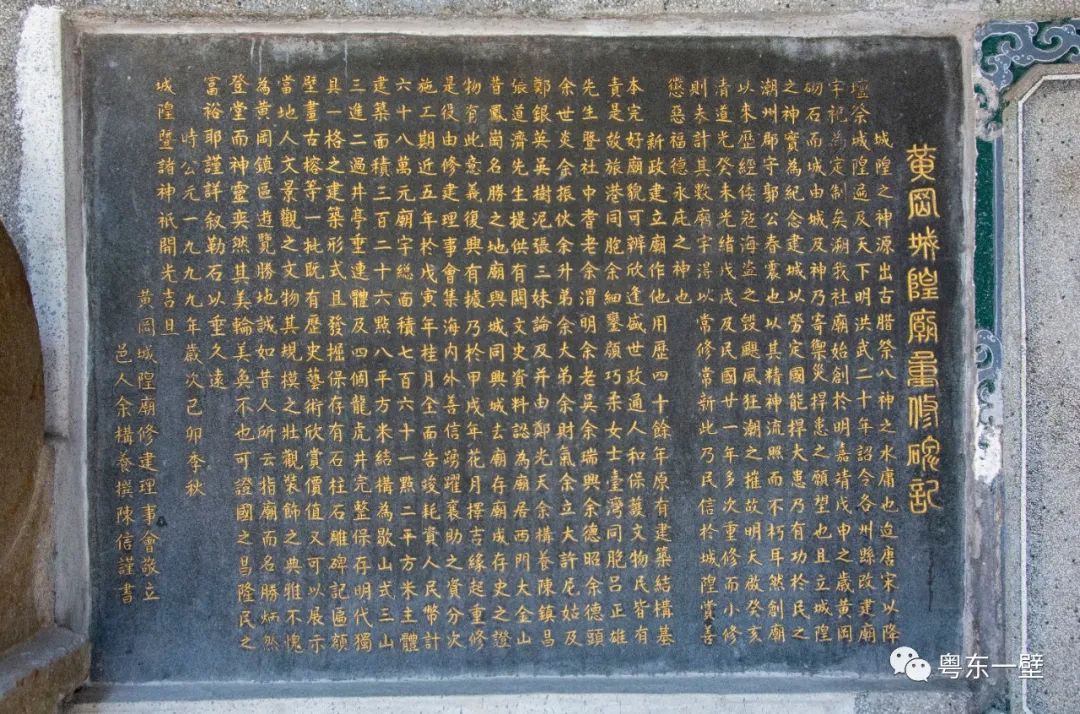 黄岡城隍廟重修碑記
城隍之神源出古腊祭八神之水庸也迨唐宋以降
壇祭城隍遍及天下明洪武二十年詔令各州縣改建廟
宇祀為定制矣溯我社廟始創於明嘉靖戊申之歲黄岡
砌石而城由城及神乃寄禦災捍患之願望也且立城隍
之神實為紀念建城以勞定國能捍大患乃有功於民之
潮州郡守郭公春震也以其精神流照而不朽年然創廟
以来歷經倭寇海盗之毁颶風狂潮之摧故明天啟癸亥
清道光癸未光緒戊戌及民國廿一年多次重修而小修
則未計其數廟宇得以常修常新此乃民信於城隍賞善
懲惡福德永庇之神也
新政建立廟作他用歷四十餘年原有建築結構基
本完好廟貌可辨欣逢盛世政通人和保護文物民皆有
責是故旅港同胞余細鑾顔巧柔女士臺灣同胞吕正雄
先生暨社中耆老余渭明余老吴余瑞興余德昭余德頭
余世炎金振伙余升弟余大弟余財氣余立大許尼姑及
鄭銀英吴樹泥張三妹論及并由鄭光天余構養陳鎮昌
張道濟先生提供有關文史資料認為廟居西門大金山
昔鳳崗名勝之地廟與城同興城去廟存廟成存史之證
物有此意義復興有據乃於甲戌年花月擇吉緣起重修
是役由修建理事會集海内外善信踴躍襄助之資分次
施工期近五年於戊寅年桂月全面告竣耗資人民幣計
六十八萬元廟宇總面積七百六十一點二平方米主體
建築面積三百二十六點八平方米結構為歇山式三山
三進二過井亭重連體及四個龍虎井完整保存明代獨
具一格之建築形式且發掘保存有石柱石雕碑記匾額
壁畫古榕等一批既有歷史藝術欣賞價值又可以展示
當地人文景觀之文物其規模之壯觀裝飾之典雅不愧
為黄岡鎮區遊覽勝地誠如昔人所云指廟而名勝炳然
登堂而神靈奕然其美輪美奂不也可證國之昌隆民之
富裕耶謹詳叙勒石以垂久遠
時公元一九九九年歲次己卯季秋
城隍暨諸神祇開光吉旦
黄岡城隍廟修建理事會敬立
邑人余構養撰陳信謹書
粤东一壁